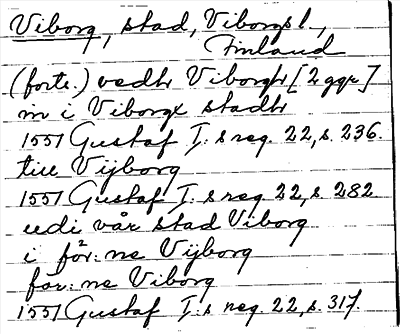 Viborg, stad, Viborgs l.,
Finland
(forts.) vedh Viborgh [2 ggr]
in i Viborgx stadh
1551 Gustaf I:s reg. 22, s. 236.
till Vijborg
1551 Gustaf I:s reg. 22, s. 282
udi vår stad Viborg
i för:ne Vijborg
för:ne Viborg
1551 Gustaf I:s reg. 22, s. 317.